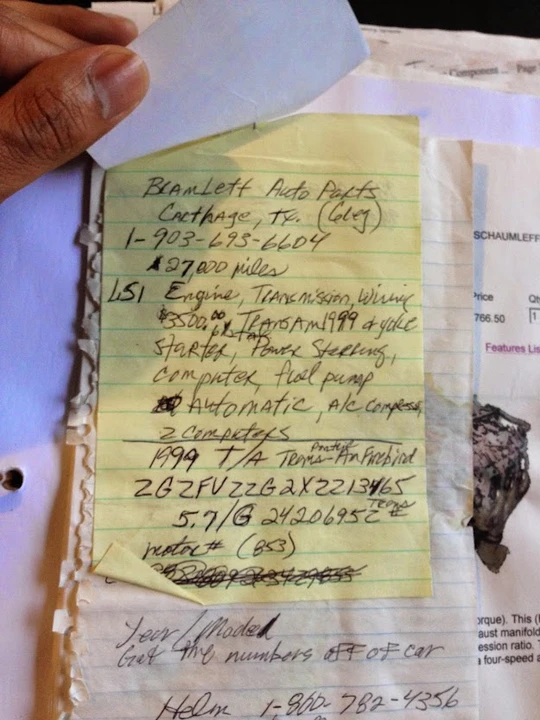 Component Page
BRAMLETT Auto Parts
Carthage, TX. (Greg)
1-903-693-6604
27,000 miles
LS1 Engine, Transmission, Wiring
$3500.00 TRANSAM 1999 & yoke
starter, Power Steering,
computer, fuel pump
Automatic, A/C Compressor
2 computers
Pontiac
1999 T/A Trans-Am Firebird
2G2FV22G2X2213465
Trans
5.7/G 24206952 #
motor# (853)
Year/Model
Get the numbers off of car
Helm 1-800-782-4356
SCHAUMLEFF
Price Qt
766.50 1
Features Lis
orque). This (
aust manifold
ession ratio. T
a four-speed a